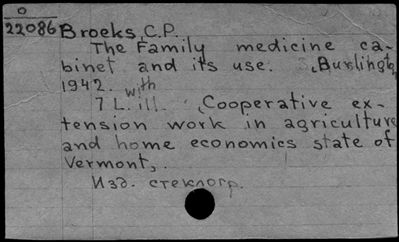 0
22086 Broeks, C.P.
The Family medicine ca-
binet and its use. Burlington,
1942. with
7 L. ill. (Cooperative ex-
tension work in agriculture
and home economics state of
Vermont,.
Изд. стеклогр.